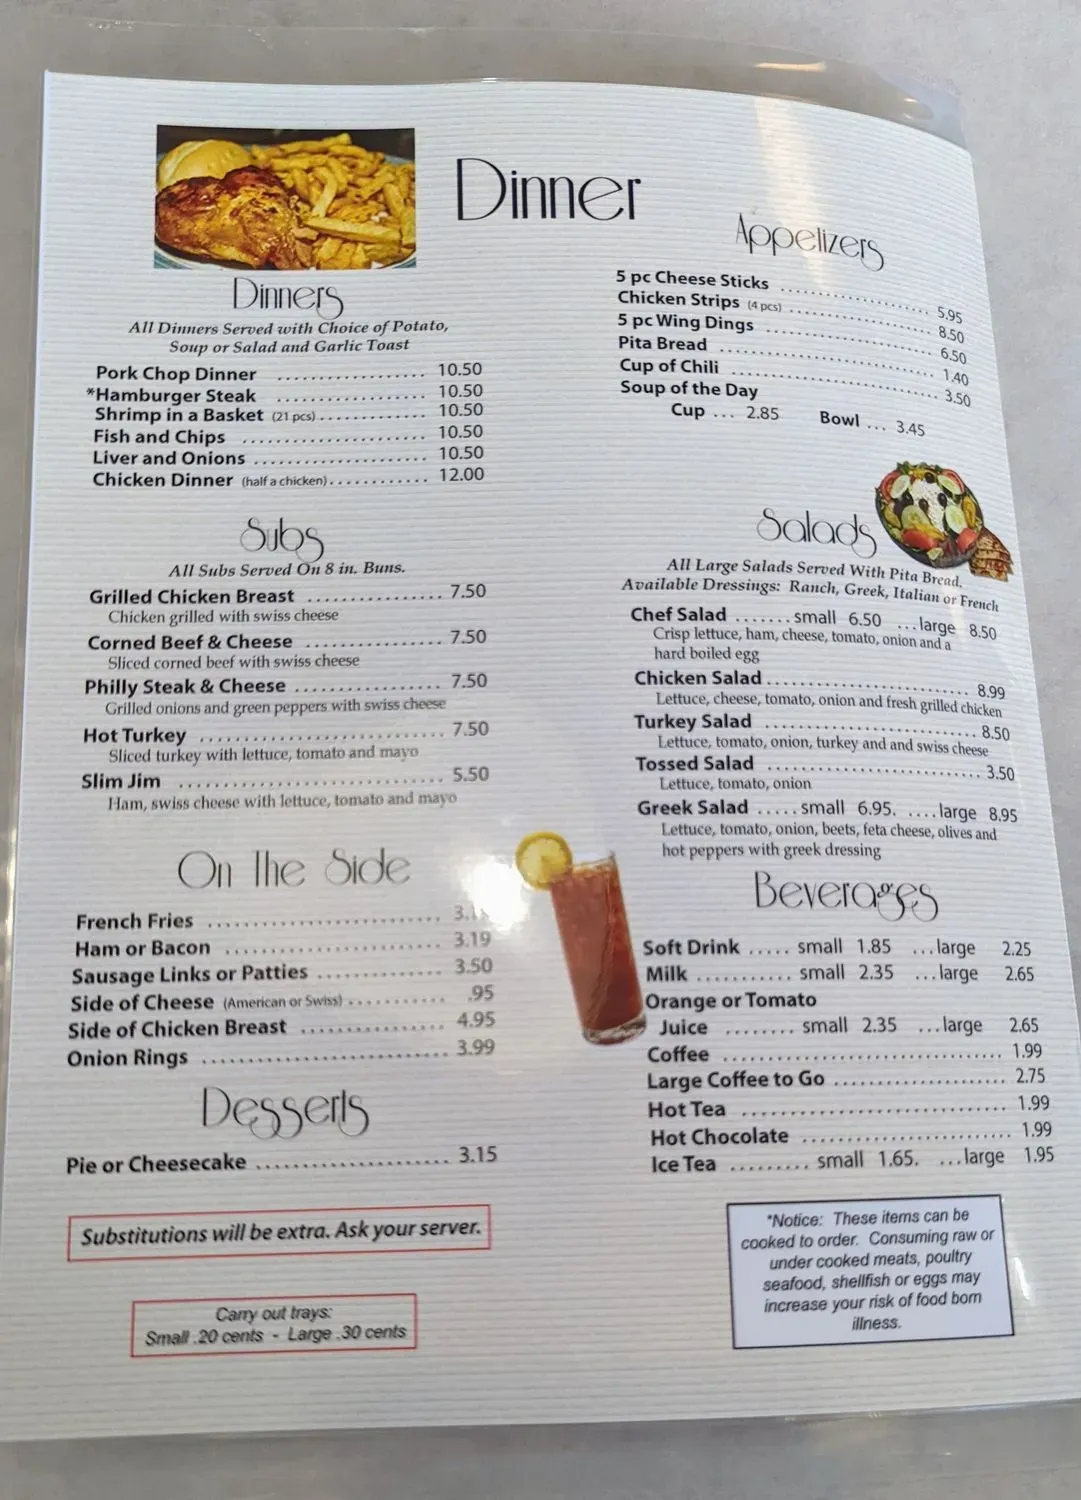 Dinner
Dinners
All Dinners Served with Choice of Potato,
Soup or Salad and Garlic Toast
Pork Chop Dinner .................. 10.50
*Hamburger Steak .................. 10.50
Shrimp in a Basket (21 pcs) ............. 10.50
Fish and Chips ...................... 10.50
Liver and Onions ..................... 10.50
Chicken Dinner (half a chicken) ............ 12.00
Subs
All Subs Served On 8 in. Buns.
Grilled Chicken Breast ................ 7.50
Chicken grilled with swiss cheese
Corned Beef & Cheese ................ 7.50
Sliced corned beef with swiss cheese
Philly Steak & Cheese ................. 7.50
Grilled onions and green peppers with swiss cheese
Hot Turkey ............................ 7.50
Sliced turkey with lettuce, tomato and mayo
Slim Jim .............................. 5.50
Ham, swiss cheese with lettuce, tomato and mayo
On The Side
French Fries ...........................
Ham or Bacon ......................... 3.19
Sausage Links or Patties ............... 3.50
Side of Cheese (American or Swiss) ........... .95
Side of Chicken Breast ................. 4.95
Onion Rings ............................ 3.99
Desserts
Pie or Cheesecake ...................... 3.15
Substitutions will be extra. Ask your server.
Carry out trays:
Small .20 cents - Large .30 cents
Appetizers
5 pc Cheese Sticks .................... 5.95
Chicken Strips (4 pcs) .................. 8.50
5 pc Wing Dings ...................... 6.50
Pita Bread ............................ 1.40
Cup of Chili ........................... 3.50
Soup of the Day
Cup ... 2.85 Bowl ... 3.45
Salads
All Large Salads Served With Pita Bread.
Available Dressings: Ranch, Greek, Italian or French
Chef Salad ....... small 6.50 ...large 8.50
Crisp lettuce, ham, cheese, tomato, onion and a
hard boiled egg
Chicken Salad .......................... 8.99
Lettuce, cheese, tomato, onion and fresh grilled chicken
Turkey Salad ........................... 8.50
Lettuce, tomato, onion, turkey and and swiss cheese
Tossed Salad ........................... 3.50
Lettuce, tomato, onion
Greek Salad ..... small 6.95. ....large 8.95
Lettuce, tomato, onion, beets, feta cheese, olives and
hot peppers with greek dressing
Beverages
Soft Drink ..... small 1.85 ...large 2.25
Milk .......... small 2.35 ...large 2.65
Orange or Tomato
Juice ........ small 2.35 ...large 2.65
Coffee ................................. 1.99
Large Coffee to Go ..................... 2.75
Hot Tea ................................ 1.99
Hot Chocolate ......................... 1.99
Ice Tea ......... small 1.65. ...large 1.95
*Notice: These items can be
cooked to order. Consuming raw or
under cooked meats, poultry
seafood, shellfish or eggs may
increase your risk of food born
illness.